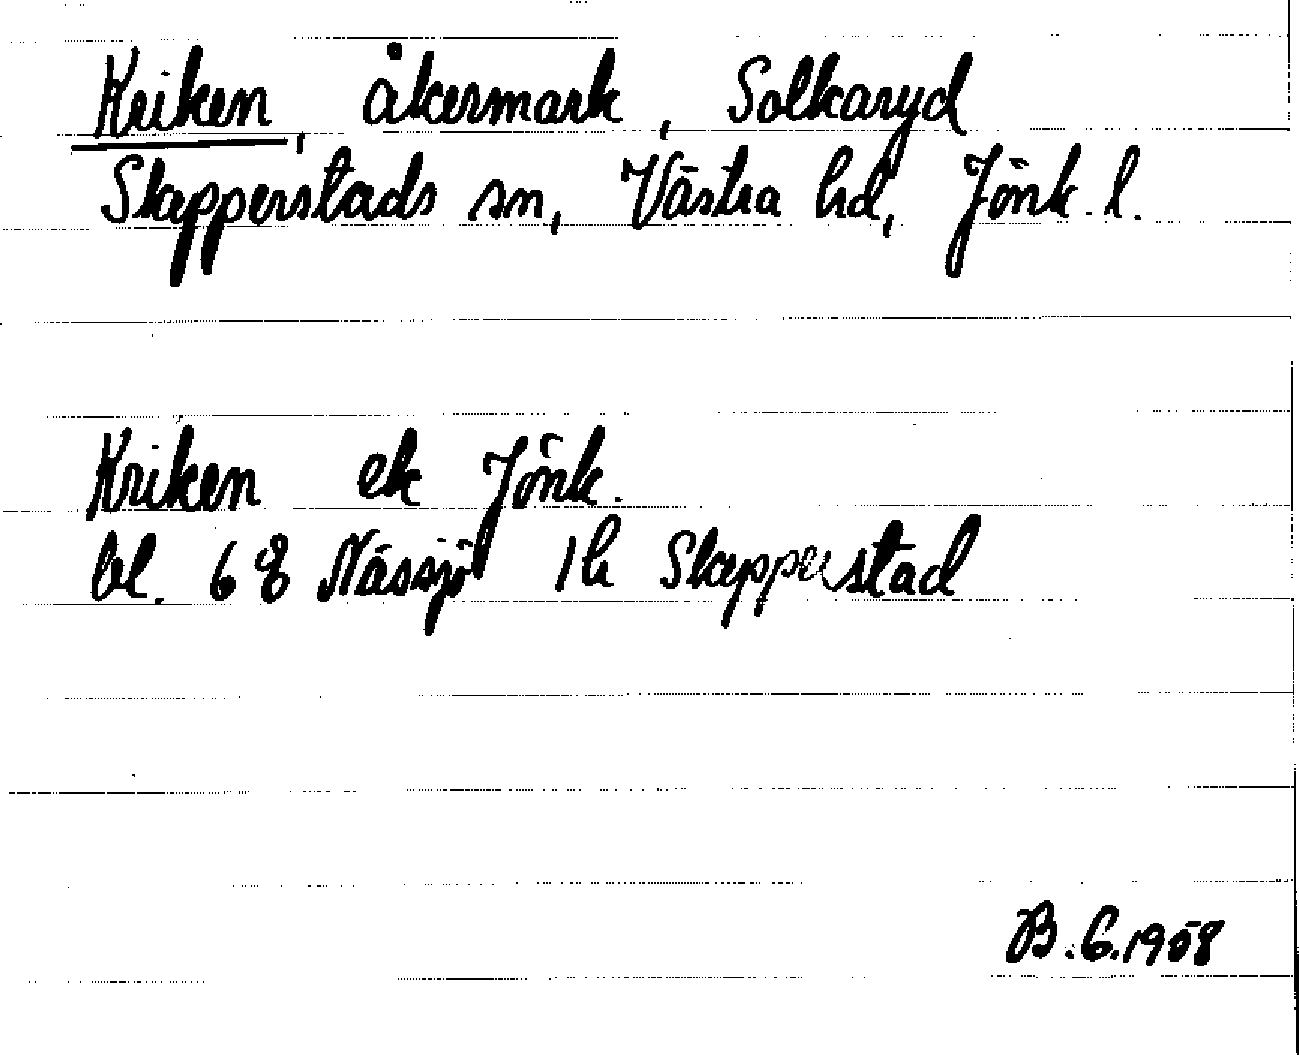 Kriken, åkermark, Solkaryd
Skepperstads sn, Västra hd, Jönk. l.
Kriken ek Jönk.
bl. 68 Nässjö 1h Skepperstad
B.G. 1958